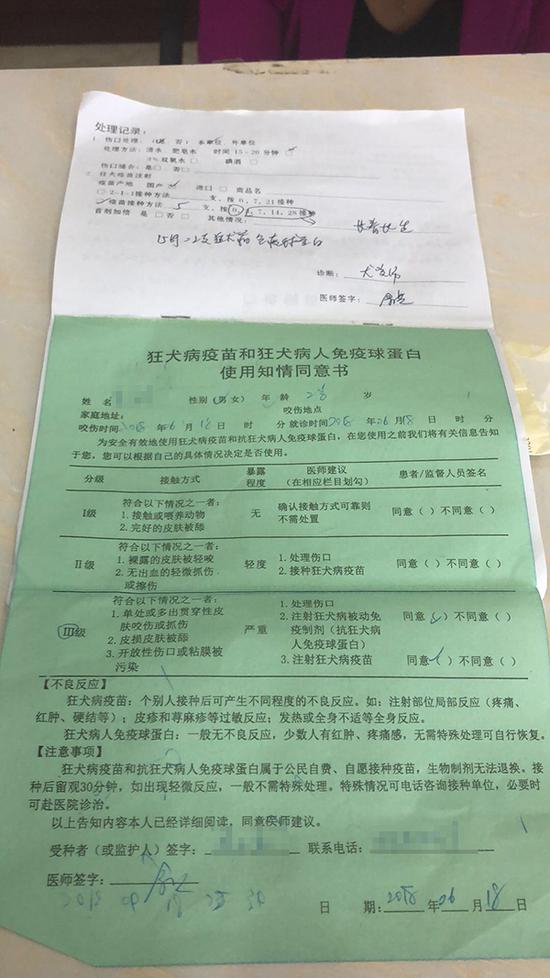 处理记录：
1 伤口处理： (是 否) 本单位 外单位
处理方法：清水 肥皂水 时间15-20分钟□
3%双氧水□ 碘酒□
伤口缝合：是□ 否□
2 狂犬疫苗注射
疫苗产地 国产 进口□ 商品名
□2-1-1接种方法 支，按0，7，21接种
疫苗接种方法 5 支，按0，3，7，14，28接种
首剂加倍 是□否□ 其他情况：
长春长生
诊断：
医师签字：
狂犬病疫苗和狂犬病人免疫球蛋白
使用知情同意书
姓名 性别(男女) 年龄 2 岁
家庭地址： 咬伤地点
咬伤时间2018年06月18日 时 分 就诊时间2018年06月18日 时 分
为安全有效地使用狂犬病疫苗和抗狂犬病人免疫球蛋白，在您使用之前我们将有关信息告知
于您，您可以根据自己的具体情况决定是否使用。
分级 接触方式 暴露程度 医师建议（在相应栏目划勾） 患者/监督人员签名
I级 符合以下情况之一者：
1. 接触或喂养动物
2. 完好的皮肤被舔
无 确认接触方式可靠则
不需处置
同意（ ）不同意（ ）
II级 符合以下情况之一者：
1. 裸露的皮肤被轻咬
2. 无出血的轻微抓伤
或擦伤
轻度 1. 处理伤口
2. 接种狂犬病疫苗
同意（ ）不同意（ ）
III级 符合以下情况之一者：
1. 单处或多出贯穿性皮
肤咬伤或抓伤
2. 皮损皮肤被舔
3. 开放性伤口或粘膜被
污染
严重 1. 处理伤口
2. 注射狂犬病被动免
疫制剂（抗狂犬病
人免疫球蛋白）
3. 注射狂犬病疫苗
同意（✓）不同意（ ）
同意（✓）不同意（ ）
【不良反应】
狂犬病疫苗：个别人接种后可产生不同程度的不良反应。如：注射部位局部反应（疼痛、
红肿、硬结等）；皮疹和荨麻疹等过敏反应；发热或全身不适等全身反应。
狂犬病人免疫球蛋白：一般无不良反应，少数人有红肿、疼痛感，无需特殊处理可自行恢复。
【注意事项】
狂犬病疫苗和抗狂犬病人免疫球蛋白属于公民自费、自愿接种疫苗，生物制剂无法退换。接
种后留观30分钟，如出现轻微反应，一般不需特殊处理。特殊情况可电话咨询接种单位，必要时
可赴医院诊治。
以上告知内容本人已经详细阅读，同意医师建议。
受种者（或监护人）签字： 联系电话：
医师签字：
日 期：2018年06月18日